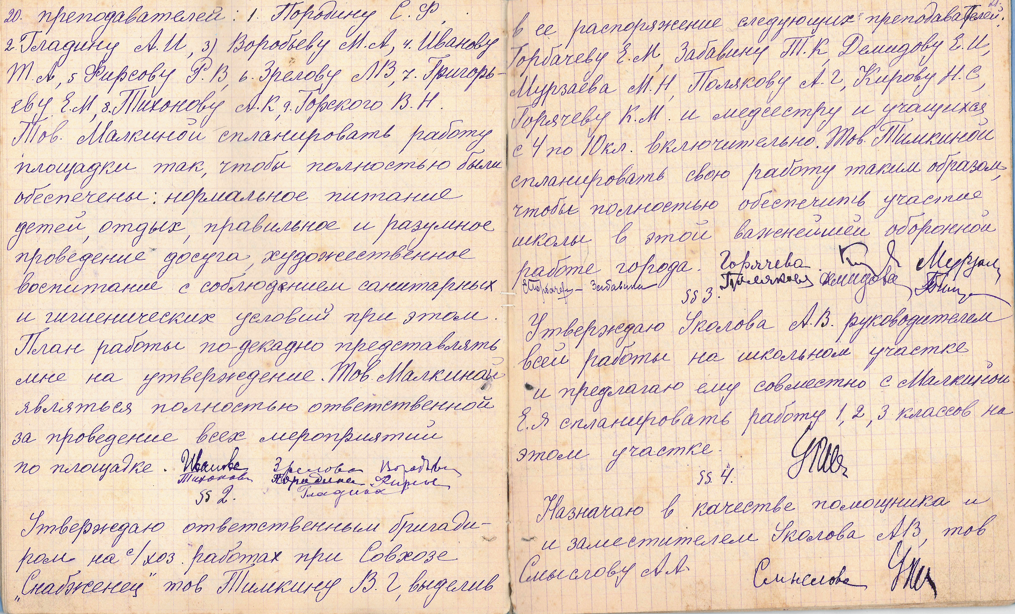 20. преподавателей: 1. Породину С.Ф.,
2 Гладину А.И, 3) Воробьеву М.А, 4. Иванову
Т.А, 5 Фирсову Р.В, 6. Зрелову Л.В, 7. Григорь-
еву Е.М, 8. Тихонову А.К, 9. Горского В.Н.
Тов. Малкиной спланировать работу
площадки так, чтобы полностью были
обеспечены: нормальное питание
детей, отдых, правильное и разумное
проведение досуга, художественное
воспитание с соблюдением санитарных
и гигиенических условий при этом.
План работы по-декадно представлять
мне на утверждение. Тов Малкиной
являться полностью ответственной
за проведение всех мероприятий
по площадке. Иванова Зрелова Воробьева
Тихонова Породина Фирсо
Гладина
§§ 2.
Утверждаю ответственным бригади-
ром на с/хоз. работах при Совхозе
"Снабженец" тов Тимкину В.Г, выделив
в ее распоряжение следующих преподавателей:
Горбачеву Е.М, Забавину Т.К, Демидову Е.И,
Мурзаева М.Н, Полякову А.Г, Кирову Н.С,
Горячеву К.М. и медсестру и учащихся
с 4 по 10 кл. включительно. Тов. Тимкиной
спланировать свою работу таким образом,
чтобы полностью обеспечить участие
школы в этой важнейшей оборонной
работе города. Горячева
Забавина Полякова Демидова
§§ 3.
Утверждаю Уколова А.В. руководителем
всей работы на школьном участке
и предлагаю ему совместно с Малкиной
Е.Я спланировать работу 1, 2, 3 классов на
этом участке.
§§ 4.
Назначаю в качестве помощника и
и заместителем Уколова А.В, тов
Смыслову А.А.
Смыслова